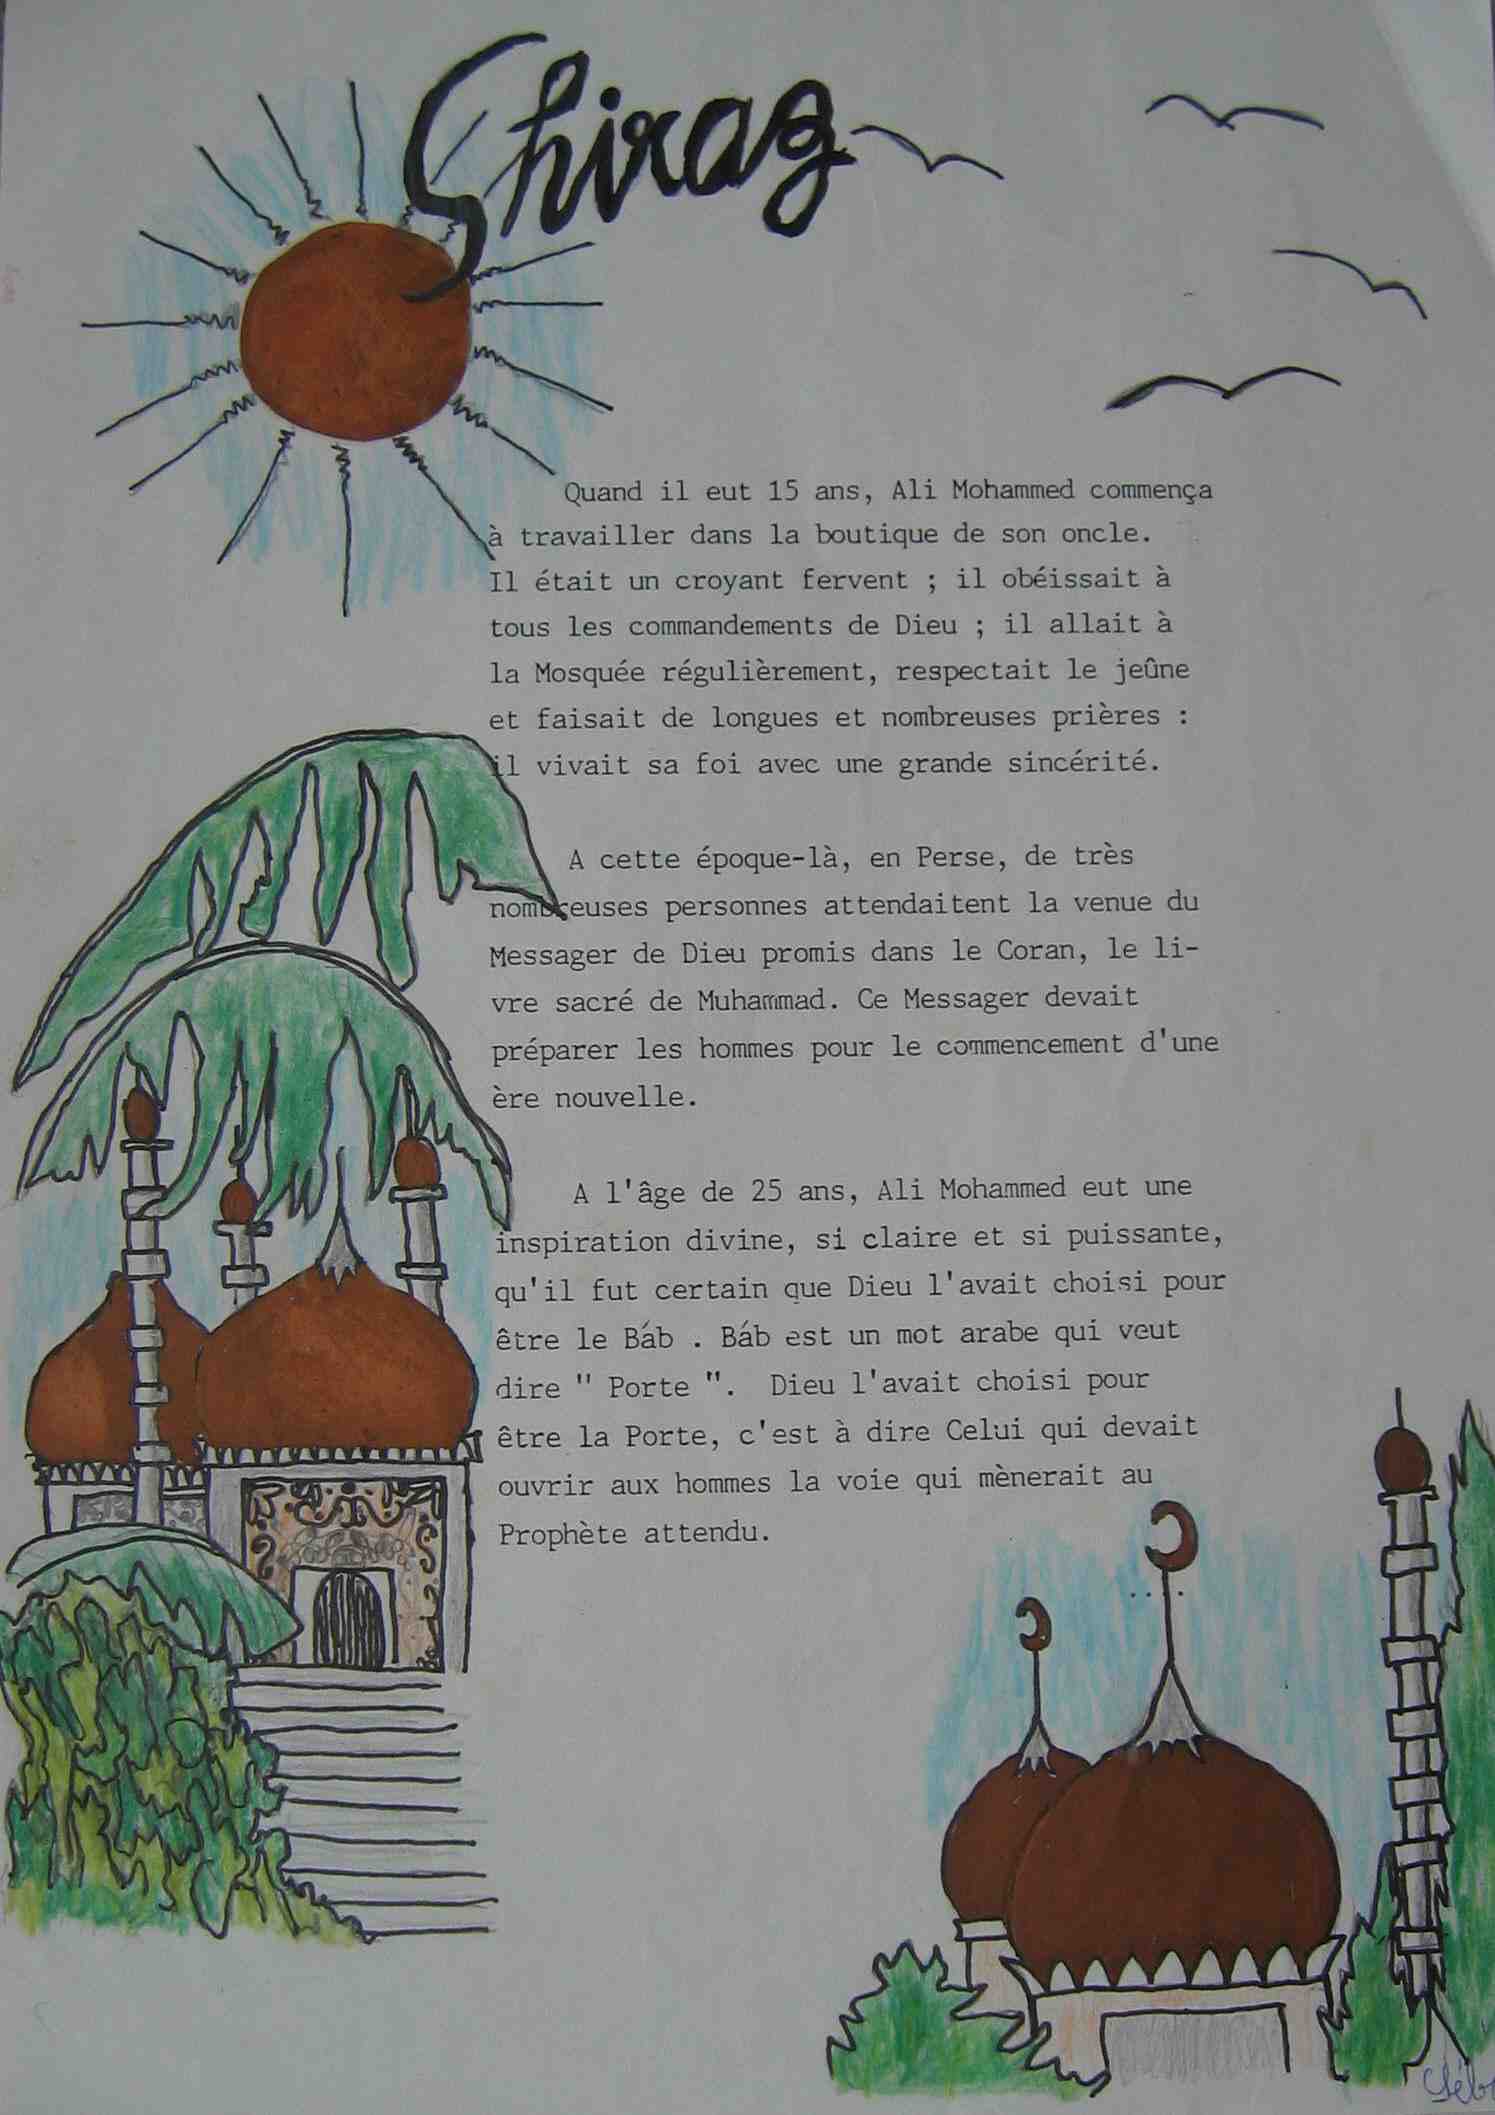 Shiraz
Quand il eut 15 ans, Ali Mohammed commença
à travailler dans la boutique de son oncle.
Il était un croyant fervent ; il obéissait à
tous les commandements de Dieu ; il allait à
la Mosquée régulièrement, respectait le jeûne
et faisait de longues et nombreuses prières :
il vivait sa foi avec une grande sincérité.
A cette époque-là, en Perse, de très
nombreuses personnes attendaitent la venue du
Messager de Dieu promis dans le Coran, le li-
vre sacré de Muhammad. Ce Messager devait
préparer les hommes pour le commencement d'une
ère nouvelle.
A l'âge de 25 ans, Ali Mohammed eut une
inspiration divine, si claire et si puissante,
qu'il fut certain que Dieu l'avait choisi pour
être le Báb . Báb est un mot arabe qui veut
dire " Porte ". Dieu l'avait choisi pour
être la Porte, c'est à dire Celui qui devait
ouvrir aux hommes la voie qui mènerait au
Prophète attendu.